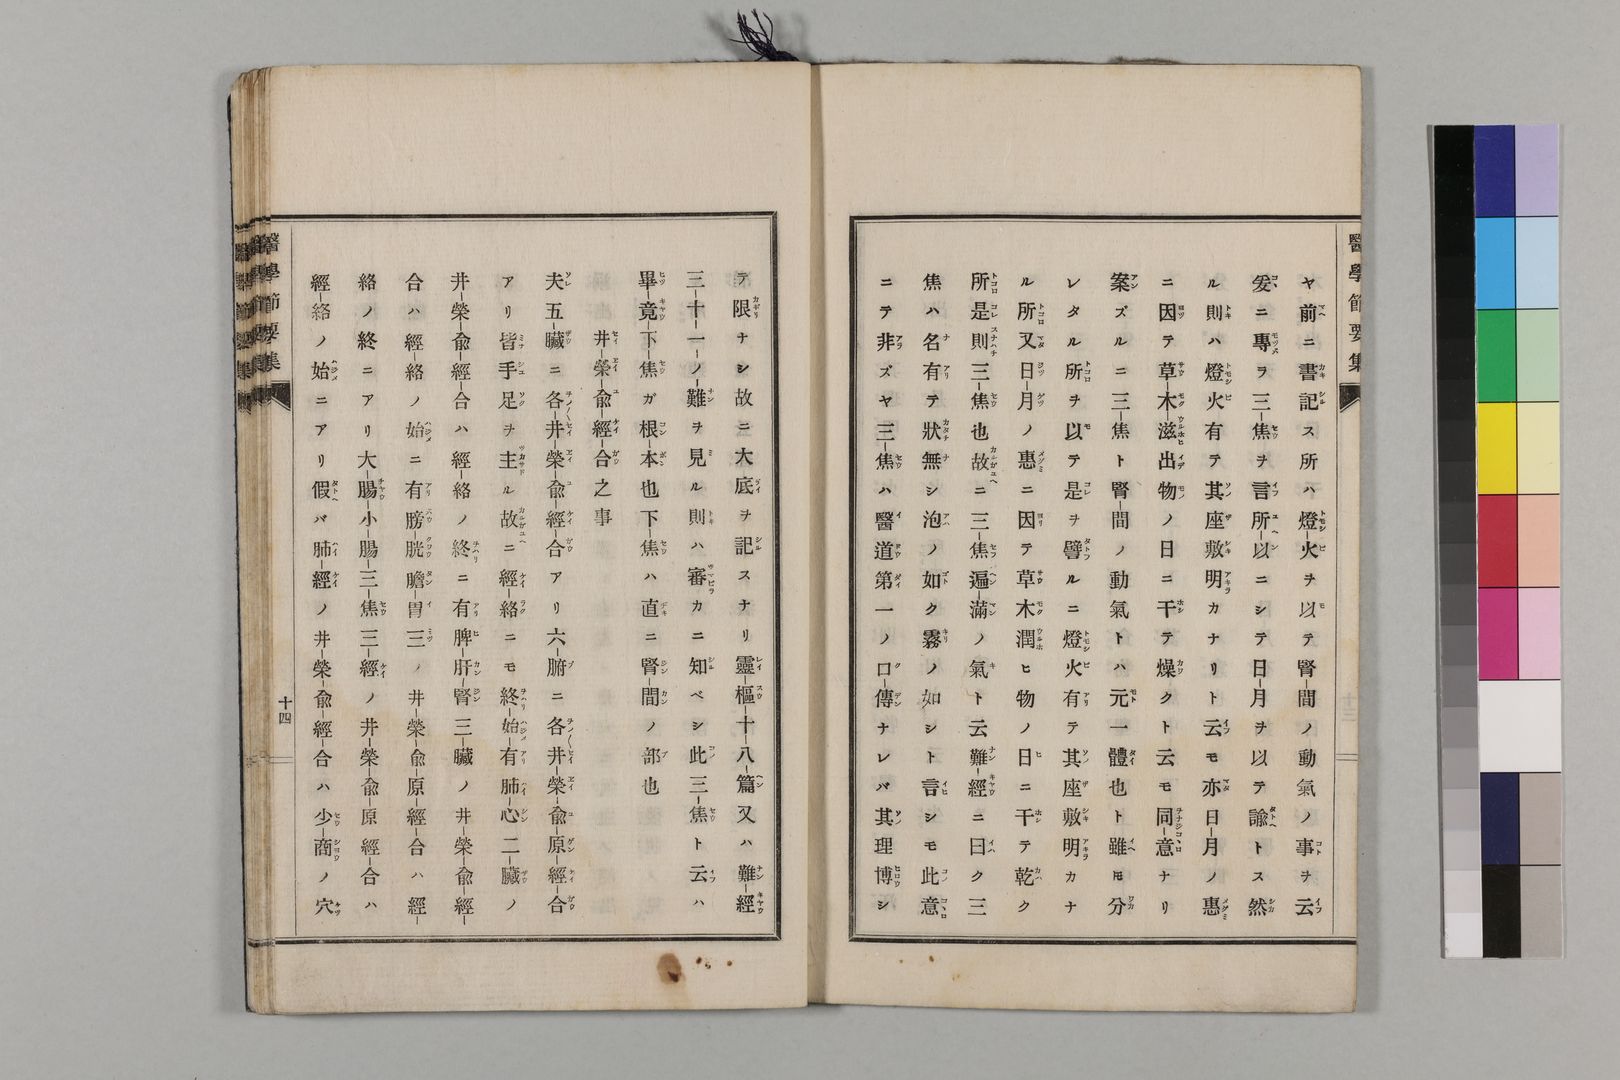 醫學節要集
ヤ前ニ書記ス所ハ燈火ヲ以テ腎間ノ動氣ノ事ヲ云
爰ニ專ラ三焦ヲ言所以ニシテ日月ヲ以テ諭トス然
ル則ハ燈火有テ其座敷明カナリト云モ亦日月ノ惠
ニ因テ草木滋出物ノ日ニ干テ燥クト云モ同意ナリ
案ズルニ三焦ト腎間ノ動氣トハ元一體也ト雖モ分
レタル所ヲ以テ是ヲ譬ルニ燈火有テ其座敷明カナ
ル所又日月ノ惠ニ因テ草木潤ヒ物ノ日ニ干テ乾ク
所是則三焦也故ニ三焦遍滿ノ氣ト云難經ニ曰ク三
焦ハ名有テ狀無シ泡ノ如ク霧ノ如シト言シモ此意
ニテ非ズヤ三焦ハ醫道第一ノ口傳ナレバ其理博シ
テ限ナシ故ニ大底ヲ記スナリ靈樞十八篇又ハ難經
三十一ノ難ヲ見ル則ハ審カニ知ベシ此三焦ト云ハ
畢竟下焦ガ根本也下焦ハ直ニ腎間ノ部也
井榮兪經合之事
夫五臟ニ各井榮兪經合アリ六腑ニ各井榮兪原經合
アリ皆手足ヲ主ル故ニ經絡ニモ終始有肺心二臟ノ
井榮兪經合ハ經絡ノ終ニ有脾肝腎三臟ノ井榮兪經
合ハ經絡ノ始ニ有膀胱膽胃三ノ井榮兪原經合ハ經
絡ノ終ニアリ大腸小腸三焦三經ノ井榮兪原經合ハ
經絡ノ始ニアリ假バ肺經ノ井榮兪經合ハ少商ノ穴
醫學節要集
十四